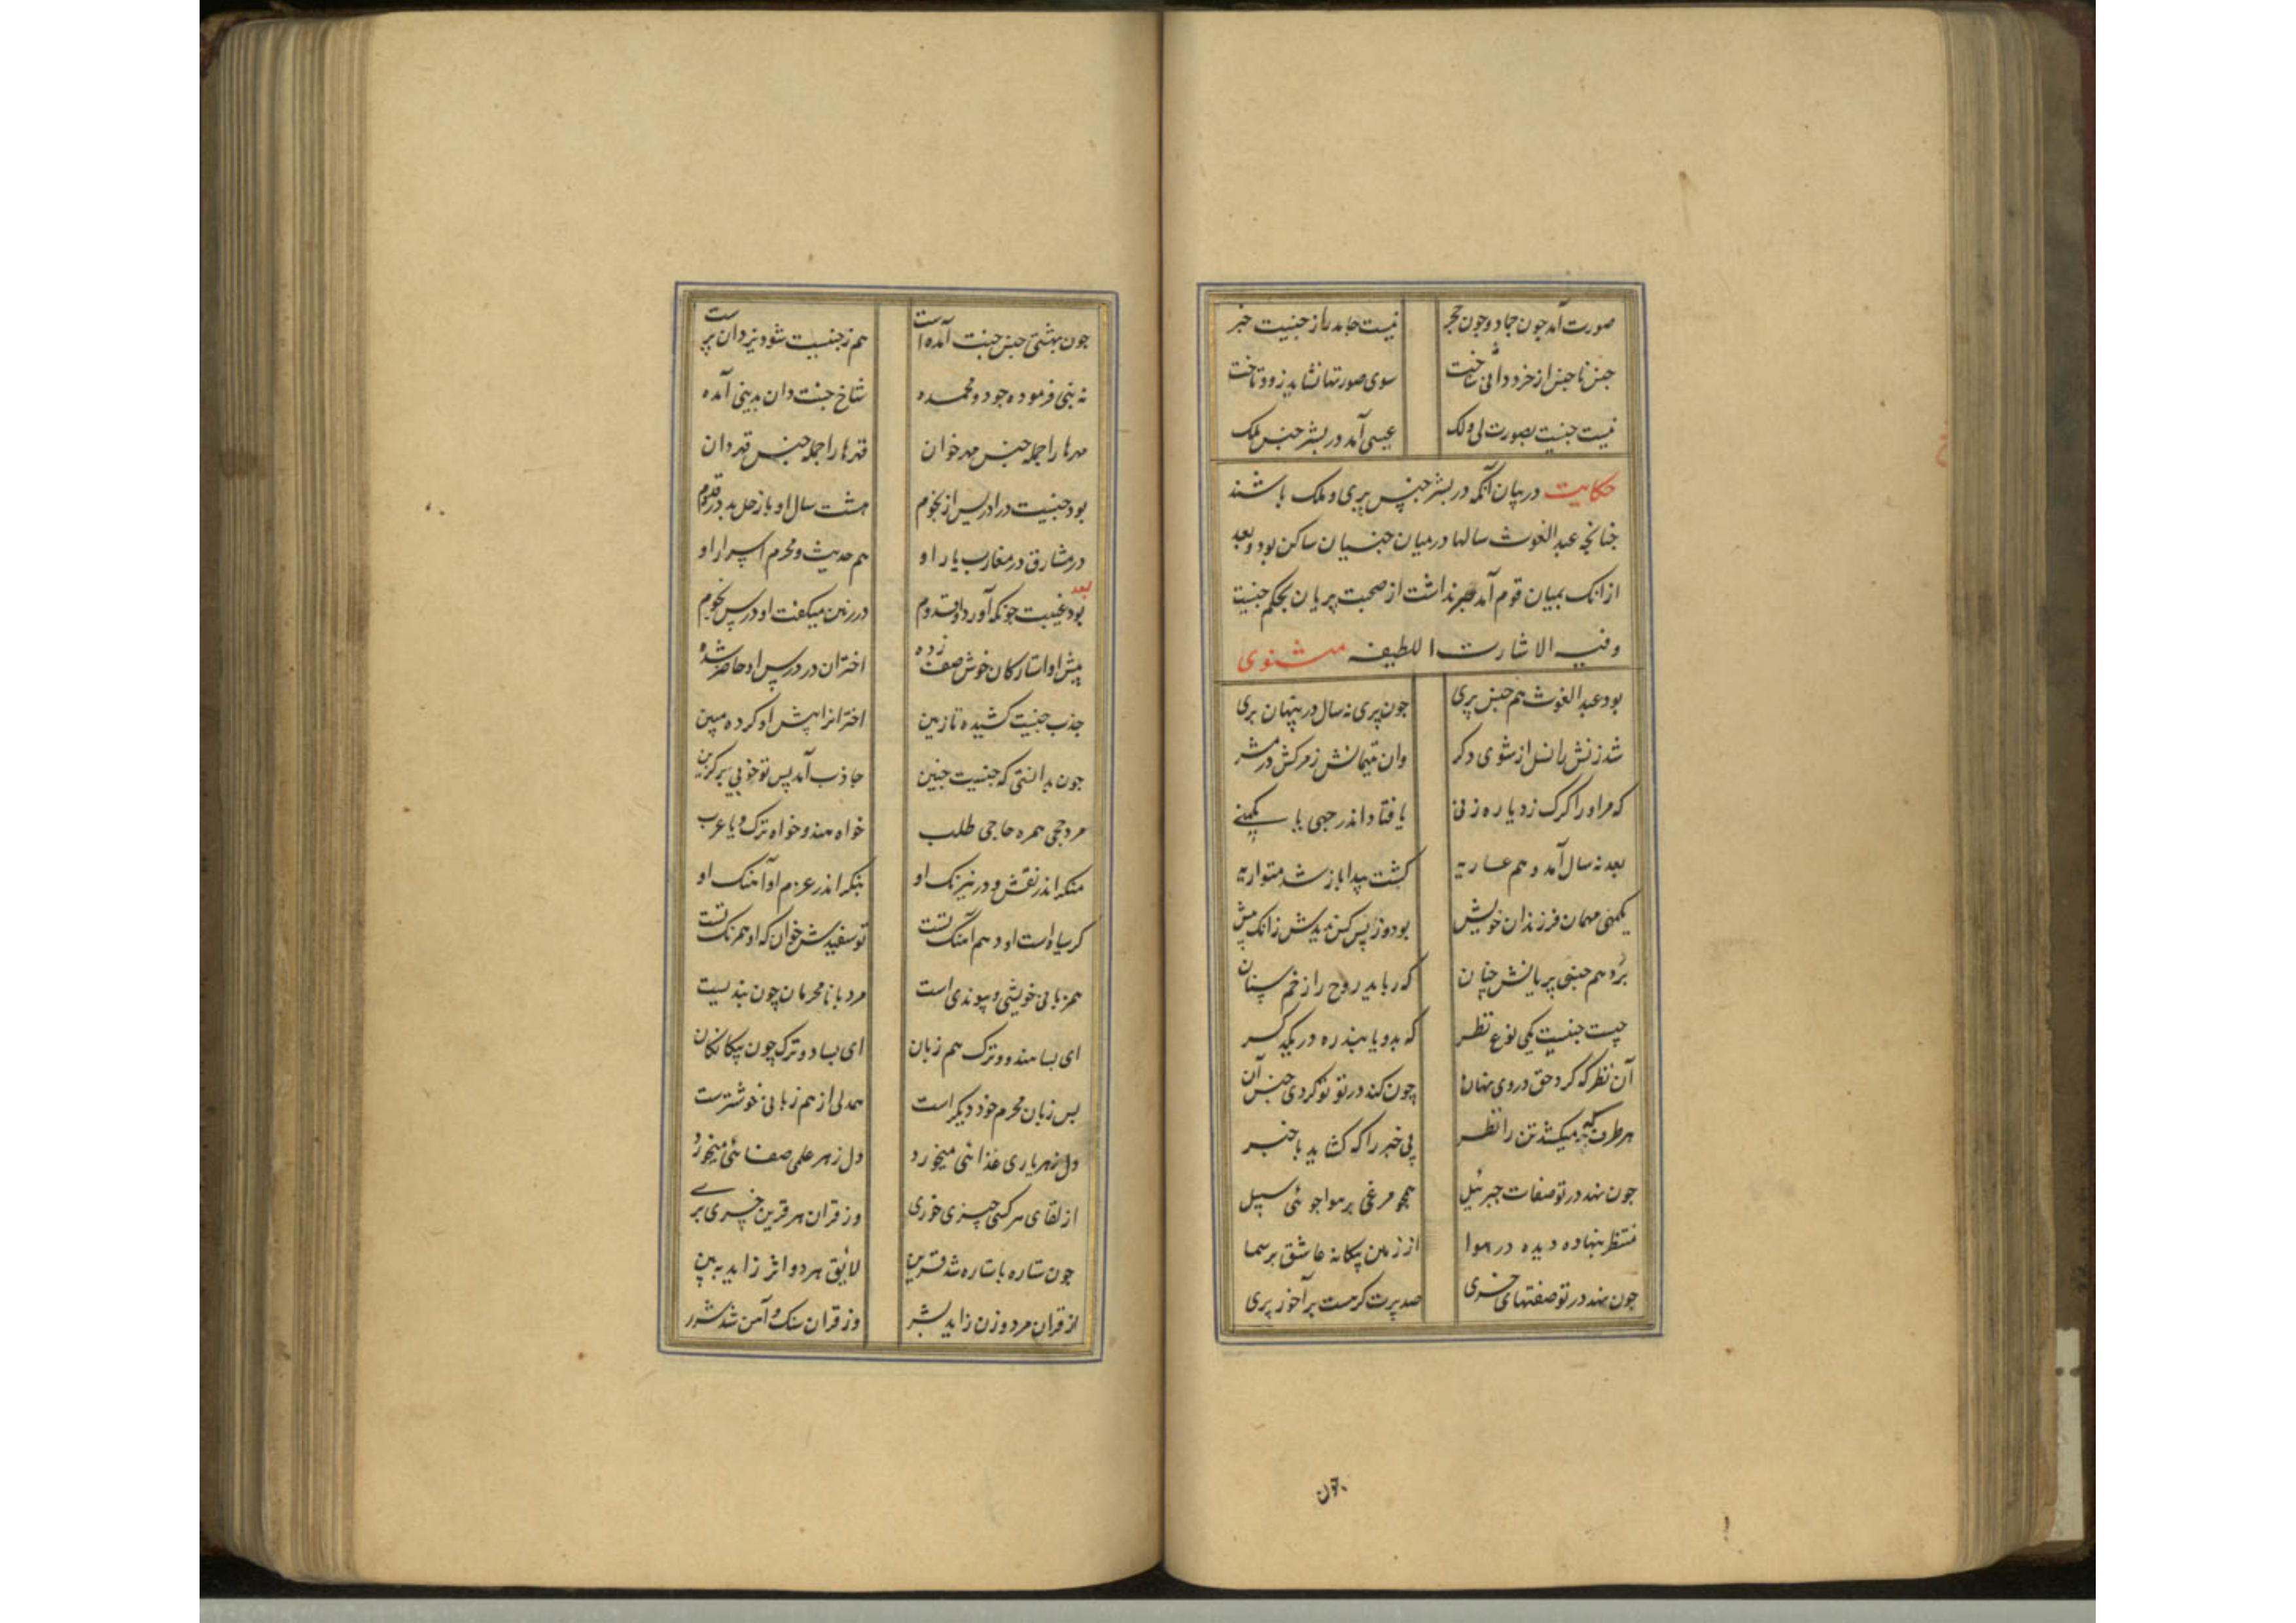 صورت آمد چون جماد و چون حجر نیست جامد را ز جنسیت خبر
جنس ناجنس از خرد دانی شناخت سوی صورتها نشاید زود تاخت
نیست جنسیت بصورت لی و لک عیسی آمد در بشر جنس ملک
حکایت در بیان آنکه در بشر جنس پری و ملک باشند
چنانچه عبدالغوث سالها در میان جنیان ساکن بود و بعد
ازانک بمیان قوم آمد صبر نداشت از صحبت پریان بحکم جنسیت
وفیه الاشارت اللطیفه مثنوی
بود عبدالغوث هم جنس پری چون پری نه سال در پنهان پری
شد زنش را نسل از شوی دکر وان یتیمانش ز مرکش در سمر
که مر او را کرک زد یا ره زنی یا فتاد اندر چهی یا مکمنی
بعد نه سال آمد و هم عاریه کشت پیدا باز شد متواریه
یکمهی مهمان فرزندان خویش بود و زان پس کس ندیدش زانک پیش
برد هم جنسی پریانش چنان که رباید روح را زخم سنان
چیست جنسیت یکی نوع نظر که بدو یابند ره در یکدکر
آن نظر که کرد حق در وی نهان چون کند در تو تو کردی جنس آن
هر طرف چه میکشد تن را نظر بی خبر را که کشاید با خبر
چون نهد در تو صفات جبرئیل همچو مرغی بر هوا جوئی سبیل
منتظر بنهاده دیده در هوا از زمین بیکانه عاشق بر سما
چون نهد در تو صفتهای خری صد پرت کر هست بر آخور پری
چون بهشتی جنس جنت آمده است هم ز جنسیت شود یزدان پرست
نه نبی فرمود جود و محمده شاخ جنت دان بدنیی آمده
مهرها را جمله جنس مهر خوان قهرها را جمله جنس قهر دان
بود جنسیت در ادریس از نجوم هشت سال او با زحل بد در قدوم
در مشارق در مغارب یار او هم حدیث و محرم اسرار او
بعد
بود غیبت چونکه آورد او قدوم در زمین میکفت او درس نجوم
پیش او استارکان خوش صف زده اختران در درس او حاضر شده
جذب جنسیت کشیده تا زمین اخترانرا پیش او کرده مبین
چون بدانستی که جنسیت چنین جاذب آمد پس تو خوبی بر کزین
مرد حجی همره حاجی طلب خواه هندو خواه ترک و یا عرب
منکر اندر نقش و در نیرنک او بنکر اندر عزم او آهنک او
کر سیاه است او و هم آهنک تست تو سفیدش خوان که او همرنک تست
همزبانی خویشی و پیوندی است مرد با نامحرمان چون بندیست
ای بسا هندو و ترک هم زبان ای بسا دو ترک چون بیکانکان
بس زبان محرم خود دیکر است همدلی از هم زبانی خوشترست
دل ز هر یاری غذائی میخورد دل ز هر علمی صفائی میخورد
از لقای هر کسی چیزی خوری وز قران هر قرین چیزی بری
چون ستاره با ستاره شد قرین لایق هر دو اثر زاید ببین
از قران مرد و زن زاید بشر وز قران سنک و آهن شد شرر